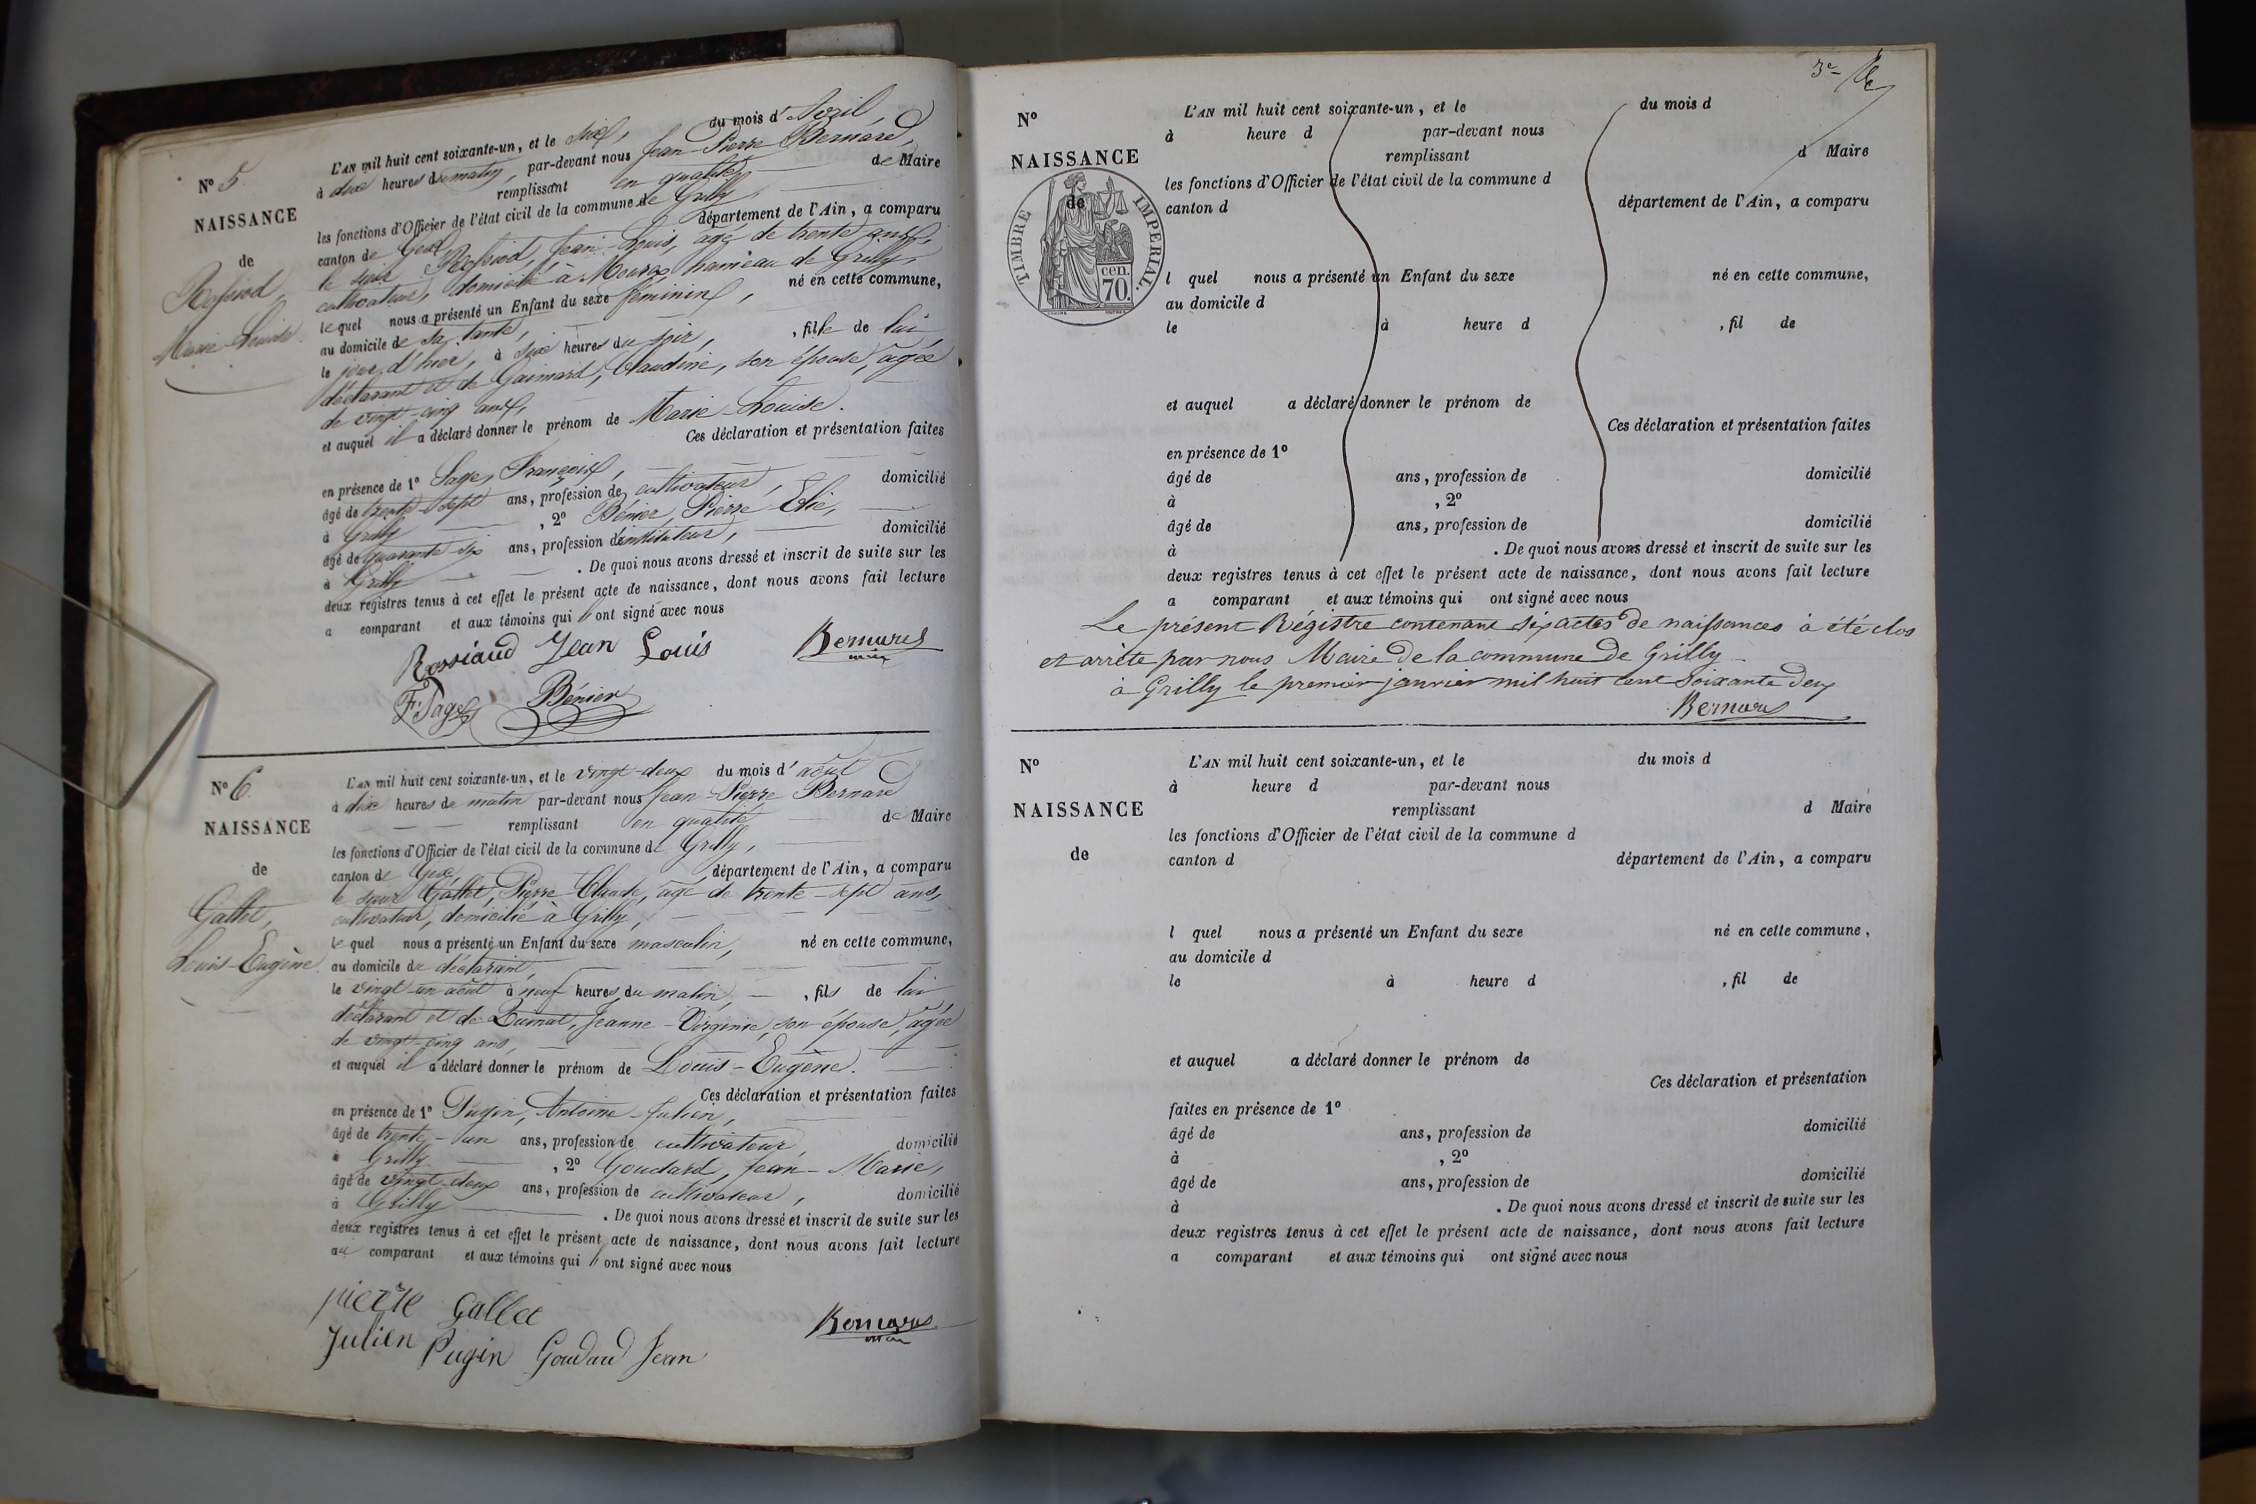 N° 5.
NAISSANCE
de
Marie-Louise.
L'AN mil huit cent soixante-un, et le six, du mois d'Avril,
à dix heures du matin, par-devant nous Jean-Pierre Bernard,
remplissant en qualité de Maire
les fonctions d'Officier de l'état civil de la commune de Grilly,
canton de Gex, département de l'Ain, a comparu
le sieur Jean-Louis, âgé de trente ans,
cultivateur, domicilié à Mourex, hameau de Grilly,
lequel nous a présenté un Enfant du sexe féminin, né en cette commune,
au domicile de sa tante,
le jour d'hier, à six heures du soir, , fille de lui
déclarant et de Gaimard, Claudine, son épouse, âgée
de vingt-cinq ans,
et auquel il a déclaré donner le prénom de Marie-Louise.
Ces déclaration et présentation faites
en présence de 1° Sage, François,
âgé de trente-sept ans, profession de cultivateur, domicilié
à Grilly , 2° Bénier, Pierre-Elie,
âgé de quarante-six ans, profession d'instituteur, domicilié
à Grilly . De quoi nous avons dressé et inscrit de suite sur les
deux registres tenus à cet effet le présent acte de naissance, dont nous avons fait lecture
a comparant et aux témoins qui ont signé avec nous
Rossiaud Jean Louis Bernard
maire
F. Sage Bénier
N° 6.
NAISSANCE
de
Gallet,
Louis-Eugène.
L'AN mil huit cent soixante-un, et le vingt-deux du mois d'août
à dix heures de matin par-devant nous Jean-Pierre Bernard
remplissant en qualité de Maire
les fonctions d'Officier de l'état civil de la commune de Grilly,
canton de Gex, département de l'Ain, a comparu
le sieur Gallet, Pierre-Claude, âgé de trente-sept ans,
cultivateur, domicilié à Grilly,
lequel nous a présenté un Enfant du sexe masculin, né en cette commune,
au domicile du déclarant,
le vingt-un août à neuf heures du matin, , fils de lui
déclarant et de Jeanne-Virginie, son épouse, âgée
de vingt-cinq ans,
et auquel il a déclaré donner le prénom de Louis-Eugène.
Ces déclaration et présentation faites
en présence de 1° Pugin, Antoine-Julien,
âgé de trente-un ans, profession de cultivateur, domicilié
à Grilly , 2° Goudard, Jean-Marie,
âgé de vingt-deux ans, profession de cultivateur, domicilié
à Grilly . De quoi nous avons dressé et inscrit de suite sur les
deux registres tenus à cet effet le présent acte de naissance, dont nous avons fait lecture
au comparant et aux témoins qui ont signé avec nous
pierre Gallet Bernard
maire
Julien Pugin Goudard Jean
3e
N°
NAISSANCE
de
TIMBRE IMPERIAL.
cen.
70.
L'AN mil huit cent soixante-un, et le du mois d
à heure d par-devant nous
remplissant d Maire
les fonctions d'Officier de l'état civil de la commune d
canton d département de l'Ain, a comparu
l quel nous a présenté un Enfant du sexe né en cette commune,
au domicile d
le à heure d , fil de
et auquel a déclaré donner le prénom de
Ces déclaration et présentation faites
en présence de 1°
âgé de ans, profession de domicilié
à , 2°
âgé de ans, profession de domicilié
à . De quoi nous avons dressé et inscrit de suite sur les
deux registres tenus à cet effet le présent acte de naissance, dont nous avons fait lecture
a comparant et aux témoins qui ont signé avec nous
Le présent Régistre contenant six actes de naissances à été clos
et arrêté par nous Maire de la commune de Grilly
à Grilly le premier janvier mil huit cent soixante deux
Bernard
N°
NAISSANCE
de
L'AN mil huit cent soixante-un, et le du mois d
à heure d par-devant nous
remplissant d Maire
les fonctions d'Officier de l'état civil de la commune d
canton d département de l'Ain, a comparu
l quel nous a présenté un Enfant du sexe né en cette commune,
au domicile d
le à heure d , fil de
et auquel a déclaré donner le prénom de
Ces déclaration et présentation
faites en présence de 1°
âgé de ans, profession de domicilié
à , 2°
âgé de ans, profession de domicilié
à . De quoi nous avons dressé et inscrit de suite sur les
deux registres tenus à cet effet le présent acte de naissance, dont nous avons fait lecture
a comparant et aux témoins qui ont signé avec nous